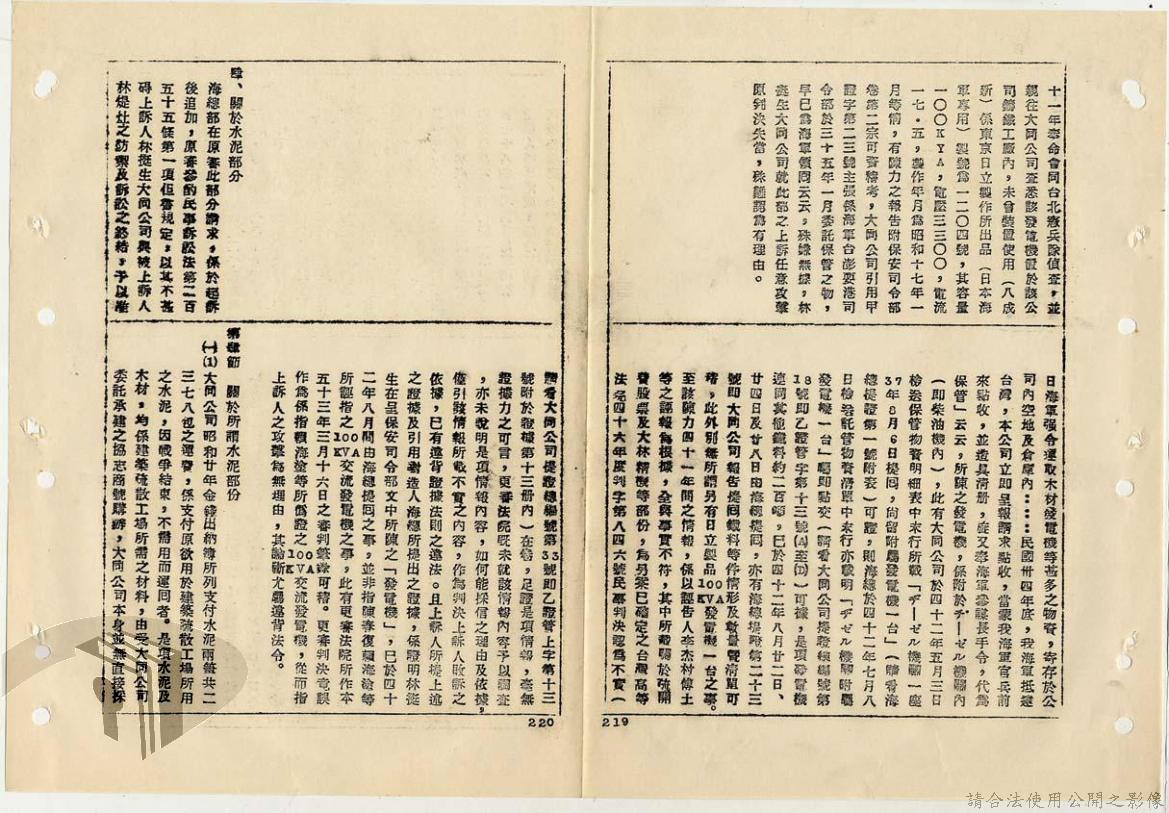 十一年奉命會同台北憲兵隊偵查,並
親往大同公司查悉該發電機置於該公
司鑄鐵工廠內,未曾裝置使用(八成
新)係東京日立製作所出品(日本海
軍專用)製號為一一二〇四號,其容量
一〇〇KVA,電壓三三〇〇,電流
一七・五,製作年月為昭和十七年一
月等情,有陳力之報告附保安司令部
卷第二宗可資稽考,大同公司引用甲
證字第二三號主張係海軍台澎要港司
令部於三十五年一月委託保管之物,
早已為海軍領回云云,殊嫌無據,林
挺生大同公司就此部之上訴任意攻擊
原判決失當,殊難認為有理由。
日海軍强令運取木材發電機等甚多之物資,寄存於公
司內空地及倉庫內:::::民國卅四年底,我海軍抵達
台灣,本公司立即呈報請求點收,當蒙我海軍官兵前
來點收,並造具清册,旋又奉海軍參謀長手令,代為
保管」云云,所陳之發電機,係附於ヂーゼル機關內
(即柴油機內),此有大同公司於四十二年五月三日
檢送保管物資明細表中末行所載「ヂーゼル機關一座
37年8月6日提回,尚留附屬發電機一台」(請看海
總提證第一號附表)可證,則海總於四十二年七月八
日檢發託管物資清單中末行亦載明「ヂゼル機關附屬
發電機一台」囑即點交(請看大同公司提證總編號第
18號即乙證管字第十三號(4)至(D))可據,是項發電機
連同其他鐵料約二百噸,已於四十二年八月廿二日、
廿四日及廿八日由海總提回,亦有海總提證第二十三
號即大同公司報告提回鐵料等件情形及數量暨清單可
稽,此外別無所謂另有日立製品100KVA發電機一台之事。
至該陳力四十一年間之情報,係以誣告人李杰林傳土
等之誣報為根據,全與事實不符,其中所載關於疏開
費股票及大林精機等部份,為另案已確定之台灣高等
法院四十六年度判字第八四六號民事判決認為不實(
219
肆、關於水泥部分
海總部在原審此部分請求,係於起訴
後追加,原審參酌民事訴訟法第二百
五十五條第一項但書規定,以其不甚
碍上訴人林挺生大同公司與被上訴人
林煶灶之防禦及訴訟之終結,予以准
請看大同公司提證總編號第33號即乙證管上字第十三
號附於證據第十三册內)在卷,足證是項情報,毫無
證據力之可言,更審法院既未就該情報內容予以調查
,亦未說明是項情報內容,如何能採信之理由及依據,
僅引該情報所載不實之內容,作為判決上訴人敗訴之
依據,已有違背證據法則之違法。且上訴人所提上述
之證據及引用者造人海總所提出之證據,係證明林挺
生在呈保安司令部文中所陳之「發電機」,已於四十
二年八月間由海總提回之事,並非指陳奉復顏海滄等
所誣指之100KVA交流發電機之事,此有更審法院所作本
五十三年三月十六日之審判筆錄可稽。更審判決竟誤
作為係指顏海滄等所偽證之100KVA交流發電機,從而指
上訴人之攻擊為無理由,其論斷尤屬違背法令。
第肆節 關於所謂水泥部份
㈠(1)大同公司昭和廿年金錢出納簿所列支付水泥兩筆共二
三七八包之運費,係支付原欲用於建築疏散工場所用
之水泥,因戰爭結束,不需用而運回者。是項水泥及
木材,均係建築疏散工場所需之材料,由受大同公司
委託承建之協志商號購辦,大同公司本身並無直接採
220
請合法使用公開之影像